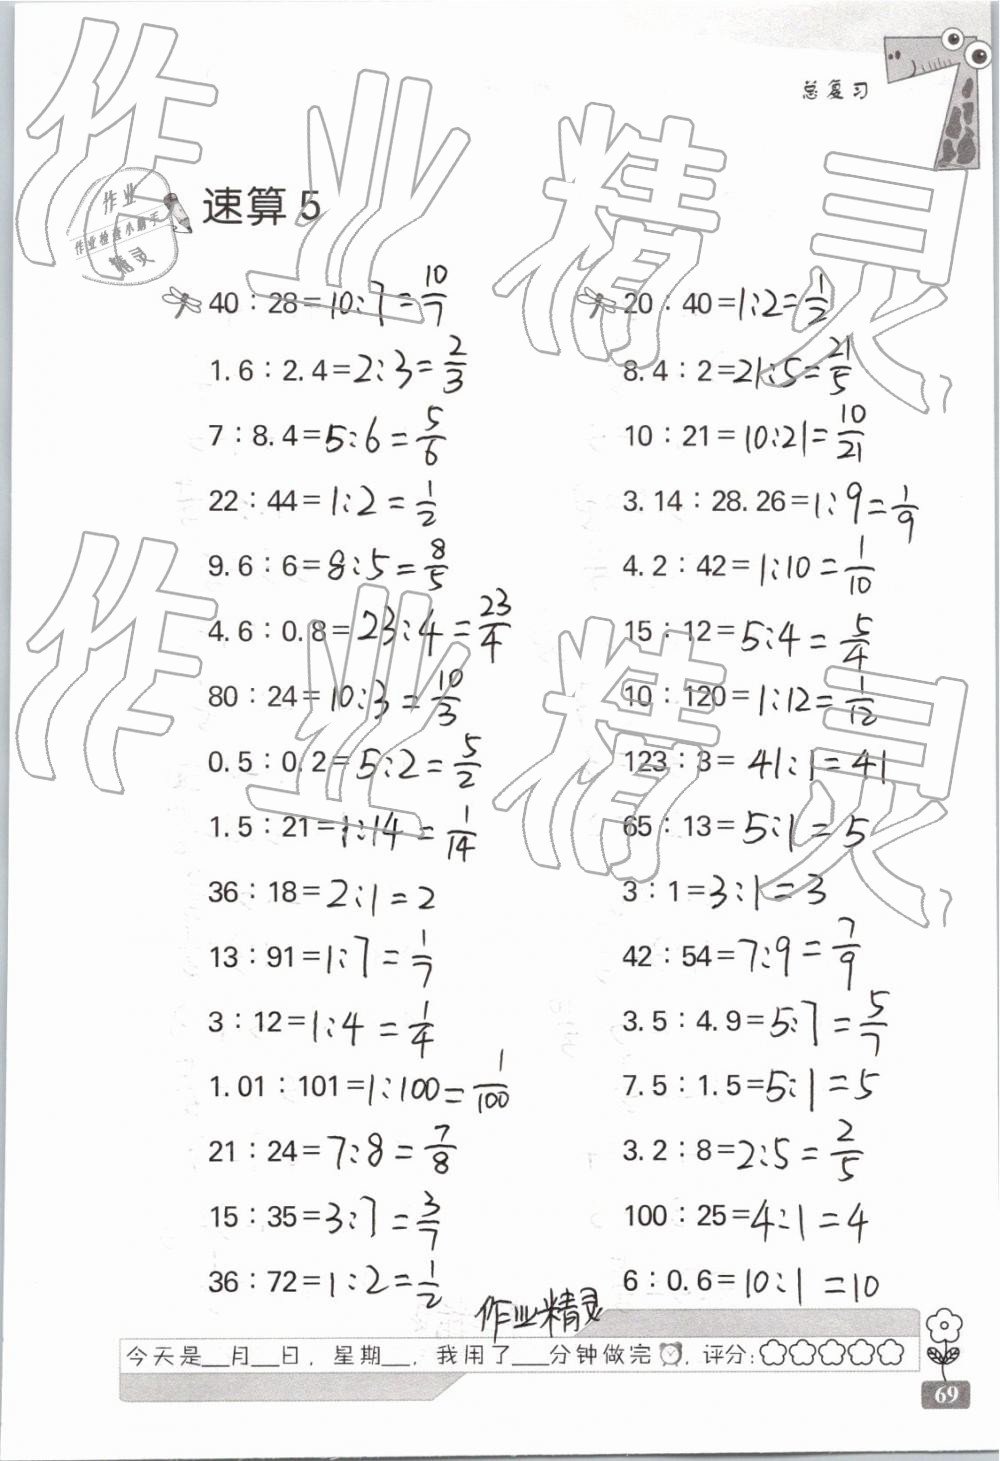 总复习
作业精灵
作业
作业检查小帮手
精灵
速算 5
40：28=10:7=10/7
20：40=1:2=1/2
1.6：2.4=2:3=2/3
8.4：2=21:5=21/5
7：8.4=5:6=5/6
10：21=10:21=10/21
22：44=1:2=1/2
3.14：28.26=1:9=1/9
9.6：6=8:5=8/5
4.2：42=1:10=1/10
作业精灵
4.6：0.8=23:4=23/4
15：12=5:4=5/4
80：24=10:3=10/3
10：120=1:12=1/12
0.5：0.2=5:2=5/2
123：3=41:1=41
1.5：21=1:14=1/14
65：13=5:1=5
36：18=2:1=2
3：1=3:1=3
13：91=1:7=1/7
42：54=7:9=7/9
3：12=1:4=1/4
3.5：4.9=5:7=5/7
1.01：101=1:100=1/100
7.5：1.5=5:1=5
21：24=7:8=7/8
3.2：8=2:5=2/5
15：35=3:7=3/7
100：25=4:1=4
36：72=1:2=1/2
6：0.6=10:1=10
作业精灵
今天是__月__日，星期__，我用了___分钟做完，评分:
69